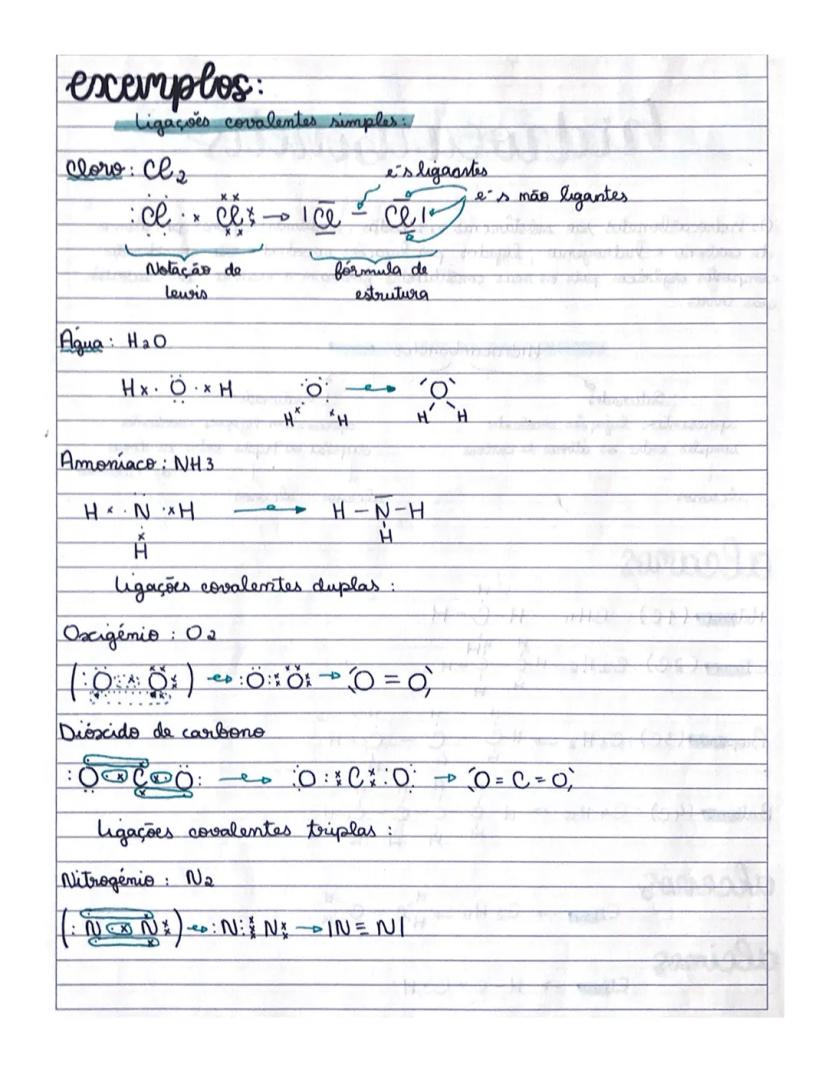 exemplos:
Ligações covalentes simples:
Cloro: Cl₂
e⁻s ligantes
e⁻s não ligantes
:Cl · × Cl → |Cl - Cl|
Notação de fórmula de
Lewis estrutura
Água: H₂O
H×· Ö ·×H :O: → O
H H H H
Amoníaco: NH3
H ×· N ·× H → H - N - H
H H
Ligações covalentes duplas:
Oxigénio: O₂
(:O O:) → :O::O: → O = O
Dióxido de carbono
:O C O: → :O::C::O: → O = C = O
Ligações covalentes triplas:
Nitrogénio: N₂
(:N N:) → :N⋮⋮N: → |N ≡ N|